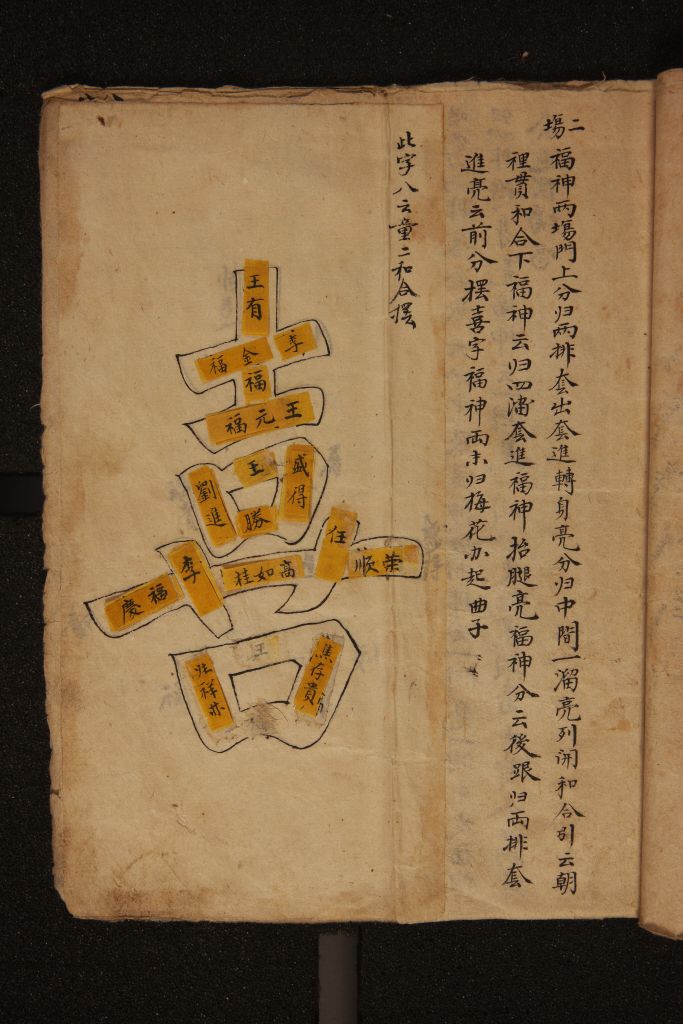 二場
福神两塲門上分归两排套出套進轉身亮分归中間一溜亮列開和合引云朝
裡貫和合下福神云归四濤套進福神抬腿亮福神分云後跟归両排套
進亮云前分摆喜字福神両末归梅花办起曲子
此字八云童二和合摆
王有
李
福金
福
福元王
王
盛得
劉進
勝
任
順荣
桂如高
李
慶福
焦存貴
祥